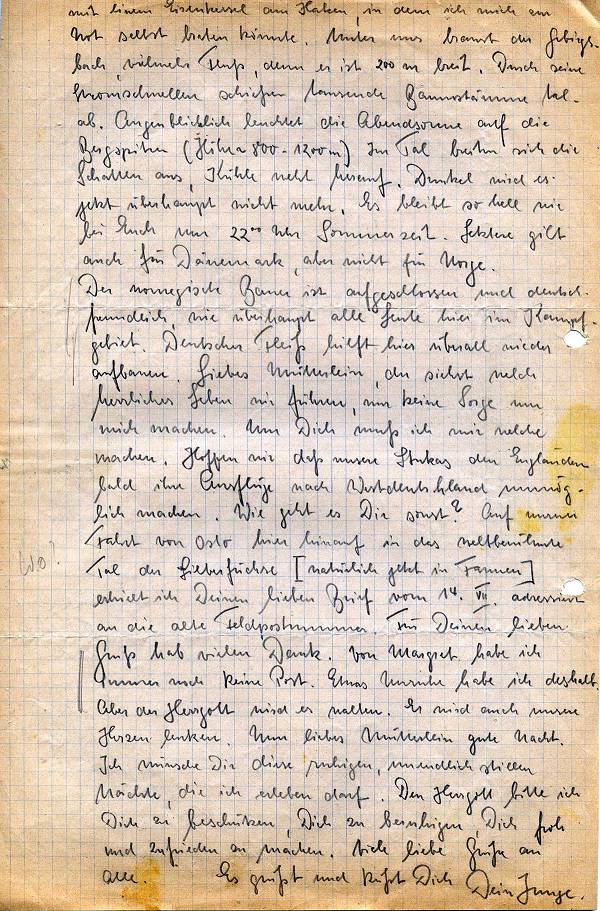 mit einem Eisenkessel am Haken, in dem ich mich zur
Not selbst braten könnte. Unter uns braust der Gebirgs-
bach, vielmehr Fluß, denn er ist 200 m breit. Durch seine
Stromschnellen schießen tausende Baumstämme tal-
ab. Augenblicklich leuchtet die Abendsonne auf die
Bergspitzen (Höhen 800-1200 m) Im Tal breiten sich die
Schatten aus, Kühle weht herauf. Dunkel wird es
jetzt überhaupt nicht mehr. Es bleibt so hell wie
bei Euch um 22⁰⁰ Uhr Sommerzeit. Letztere gilt
auch für Dänemark, aber nicht für Norge.
Der norwegische Bauer ist aufgeschlossen und deutsch-
freundlich, wie überhaupt alle Leute hier im Kampf-
gebiet. Deutscher Fleiß hilft hier überall wieder
aufbauen. Liebes Mütterlein, du siehst welch
herrliches Leben wir führen, nur keine Sorge um
mich machen. Um Dich muß ich mir welche
machen. Hoffen wir daß unsere Stukas den Engländern
bald ihre Ausflüge nach Westdeutschland unmög-
lich machen. Wie geht es Dir sonst? Auf unserer
Fahrt von Oslo hier hinauf in das weltberühmte
Wo?
Tal der Silberfüchse [natürlich jetzt in Farmen]
erhielt ich Deinen lieben Brief vom 14. VII. adressiert
an die alte Feldpostnummer. Für Deinen lieben
Gruß hab vielen Dank. Von Margret habe ich
immer noch keine Post. Etwas Unruhe habe ich deshalb.
Aber der Herrgott wird es walten. Er wird auch unsere
Herzen lenken. Nun liebes Mütterlein gute Nacht.
Ich wünsche Dir diese ruhigen, unendlich stillen
Nächte, die ich erleben darf. Den Herrgott bitte ich
Dich zu beschützen, Dich zu beruhigen, Dich froh
und zufrieden zu machen. Viele liebe Grüße an
alle. Es grüßt und küßt Dich Dein Junge.